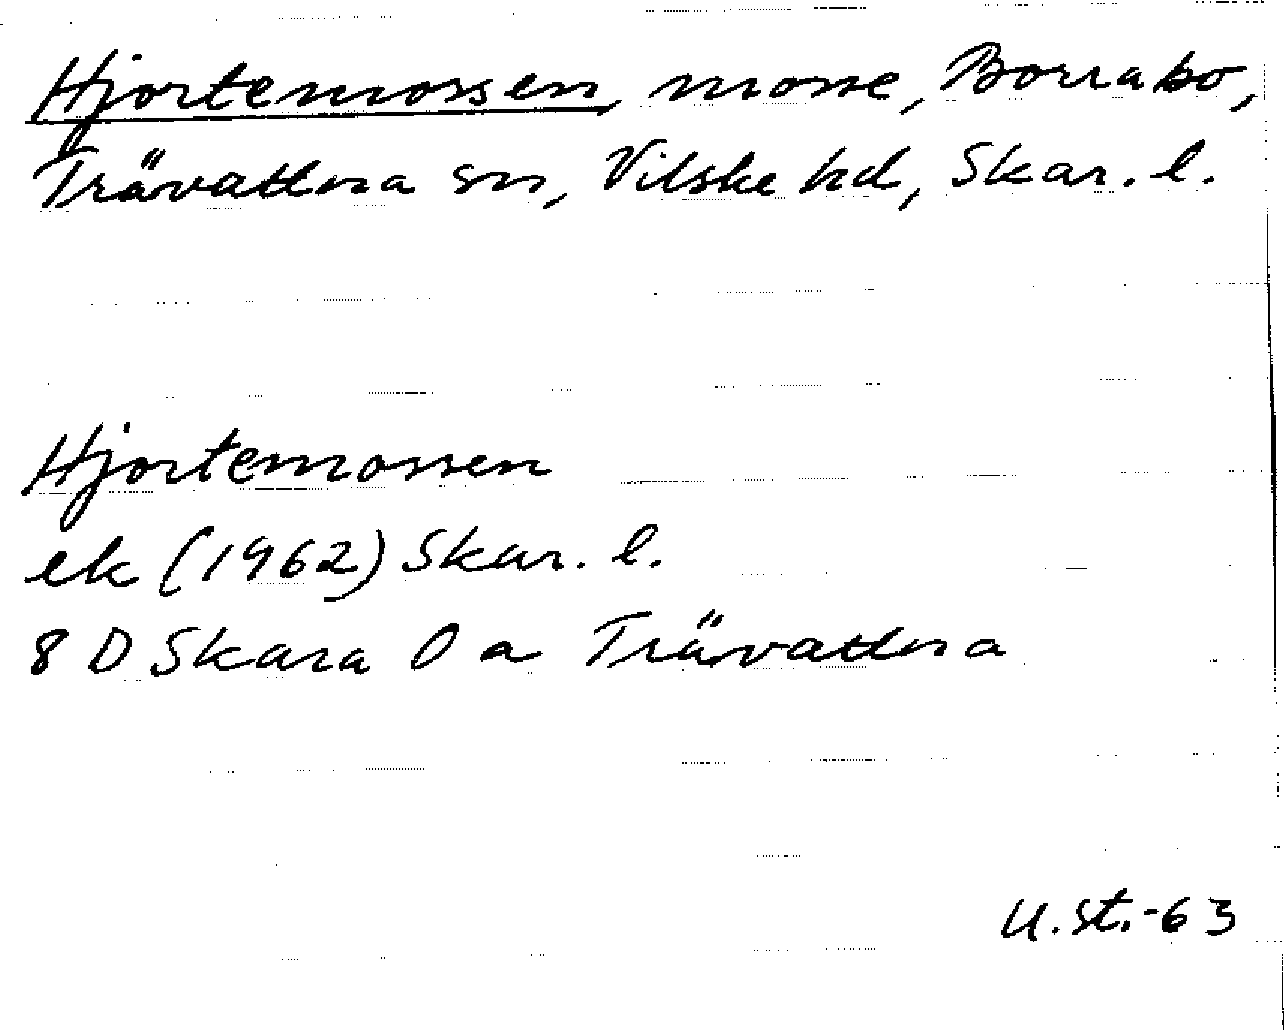 Hjortemossen, mosse, Borrabo,
Trävattna sn, Vilske hd, Skar. l.
Hjortemossen
ek (1962) Skar. l.
8 D Skara 0 a Trävattna
U.St.-63